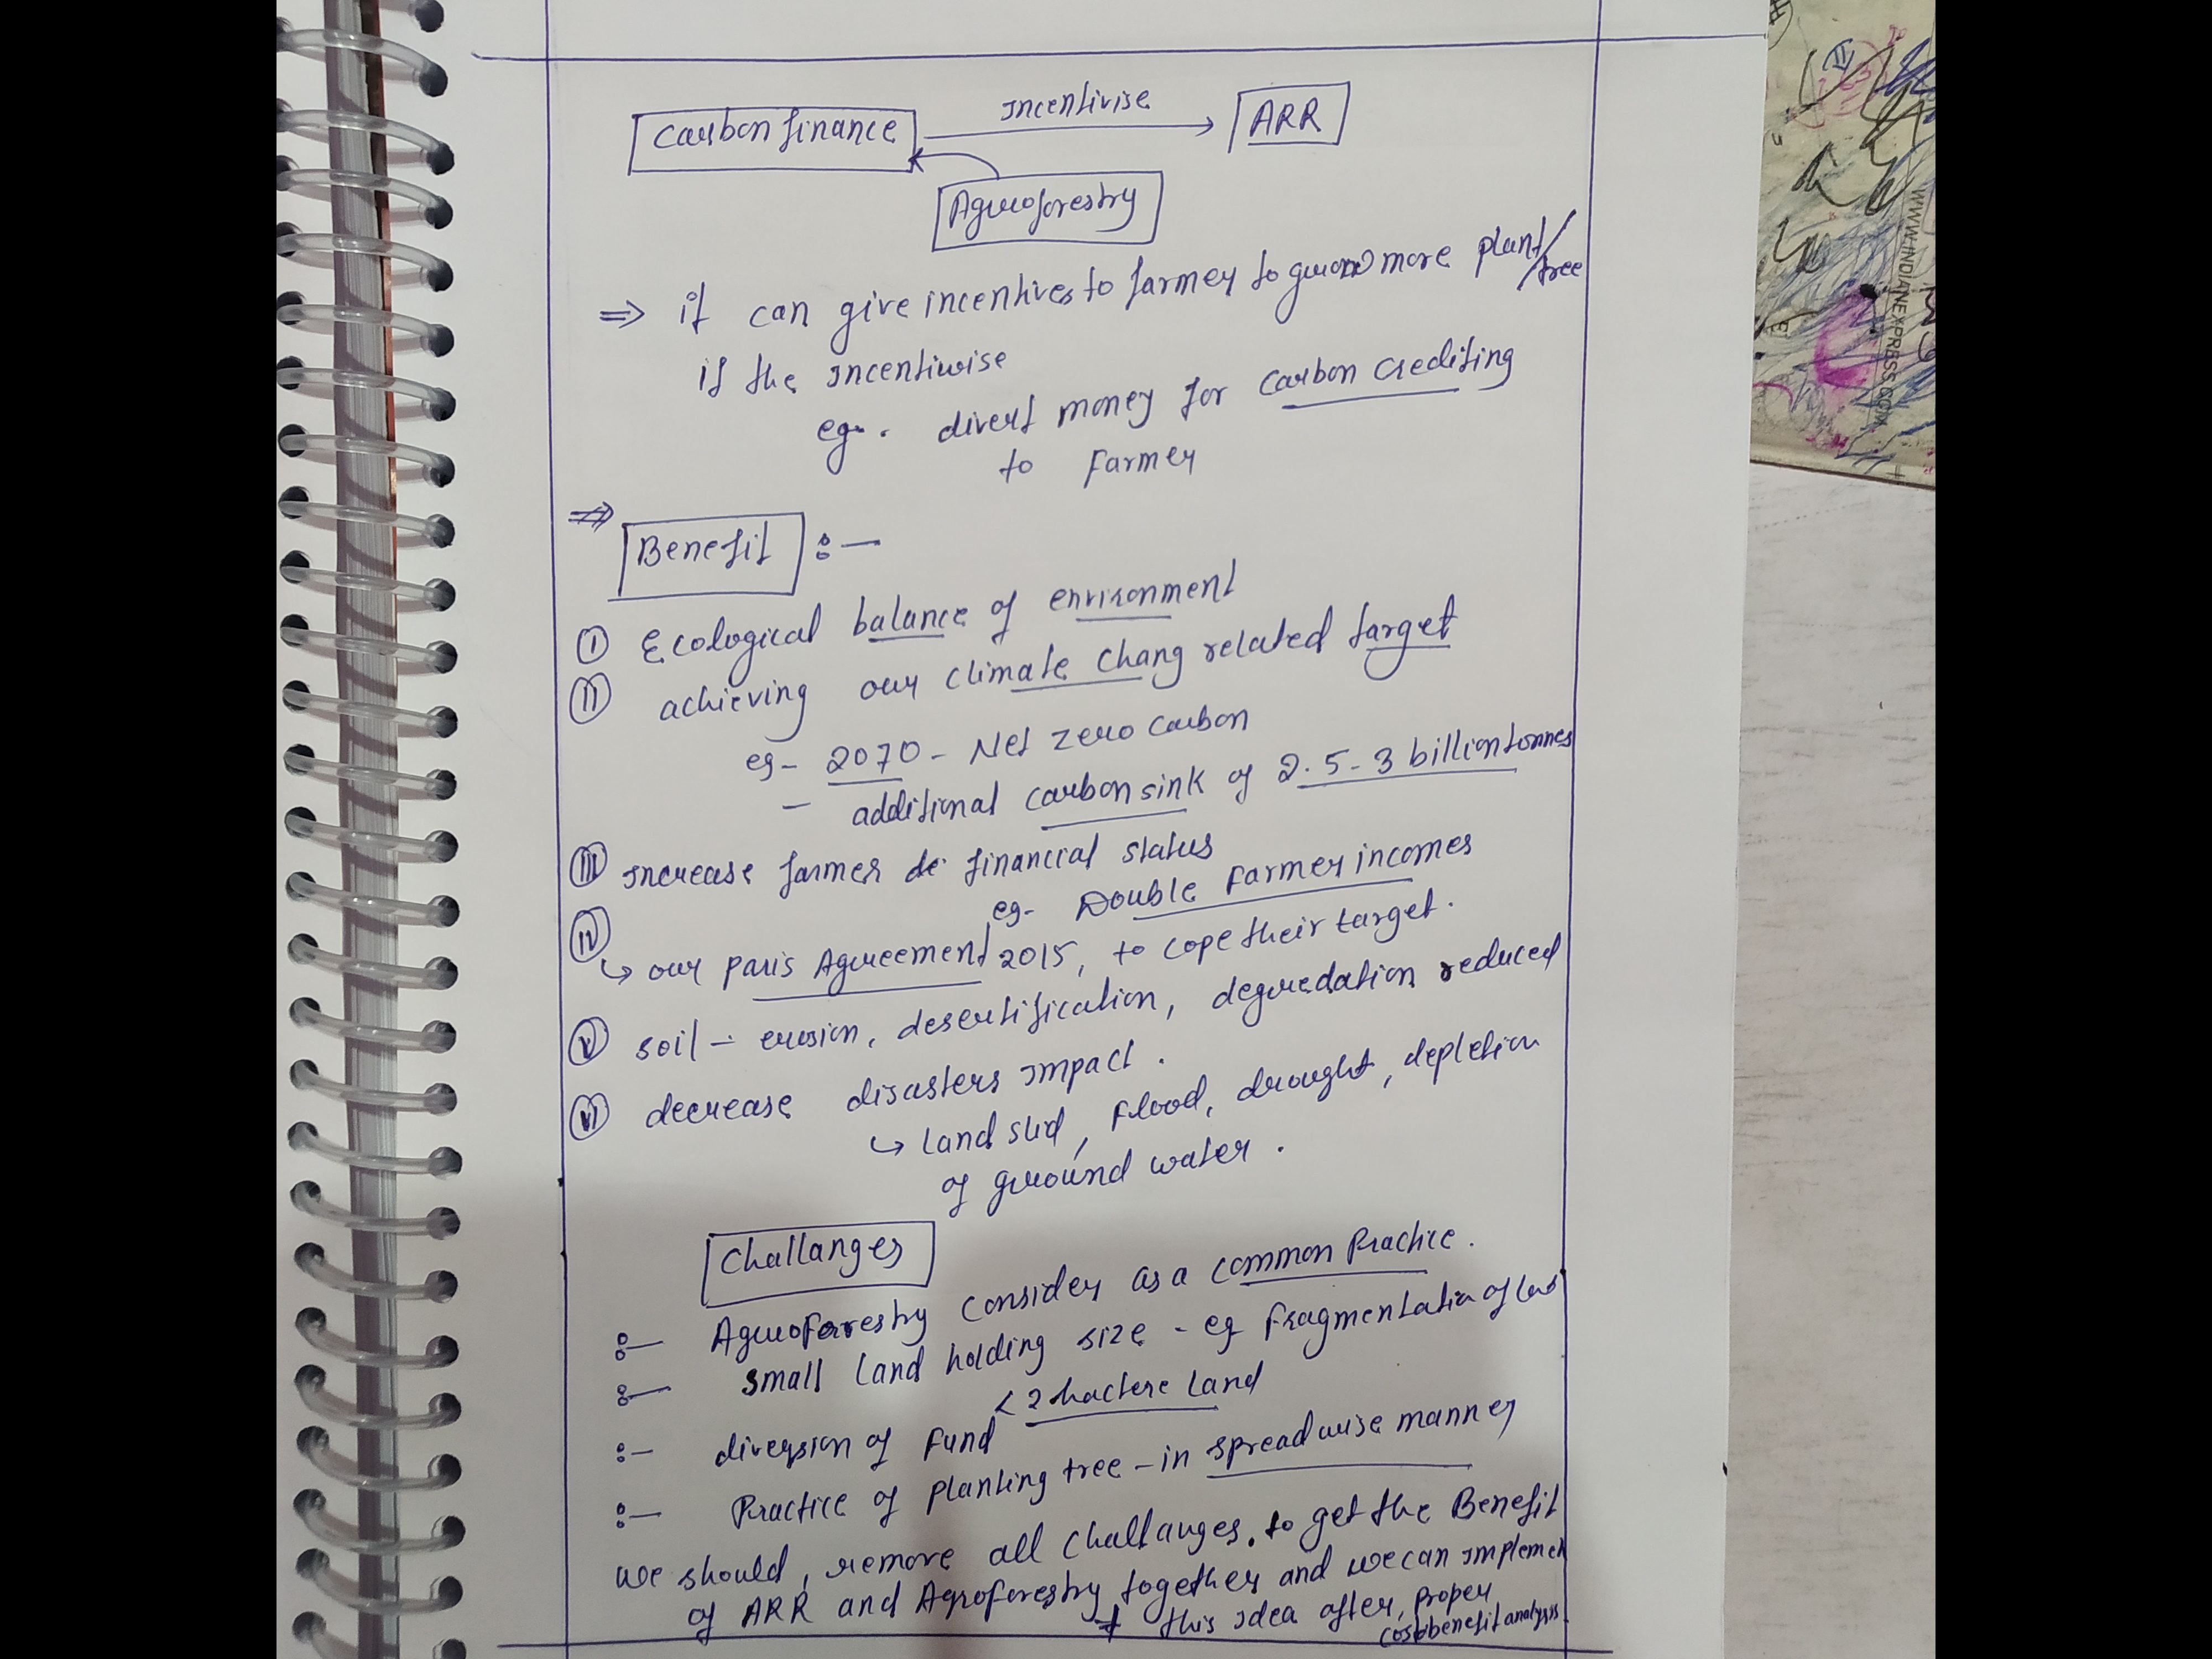 Incentivise
Carbon finance → ARR
Agroforestry
⇒ it can give incentives to farmer to grow more plant/tree
if the incentiwise
eg. divert money for carbon crediting
to Farmer
⇒ Benefit :-
(I) Ecological balance of environment
(II) achieving our climate chang related target
eg - 2070 - Net zero carbon
- additional carbon sink of 2.5 - 3 billion tonnes
(III) Increase farmer de financial status
eg - Double Farmer incomes
(IV) ↳ our paris Agreement 2015, to cope their target.
(V) soil - erosion, desertification, degredation reduced
(VI) decrease disasters impact.
↳ land slid, Flood, drought, depletion
of ground water.
Challanges
:- Agroforestry consider as a common Practice.
:- small land holding size - eg Fragmentation of
< 2 hactere Land
:- diversion of Fund
:- Practice of planting tree - in spreadwise manner
we should, remove all challanges. to get the Benefit
of ARR and Agroforestry together and we can implemen
+ this idea after, proper
cost benefit analysis
WWW.INDIANEXPRESS.COM